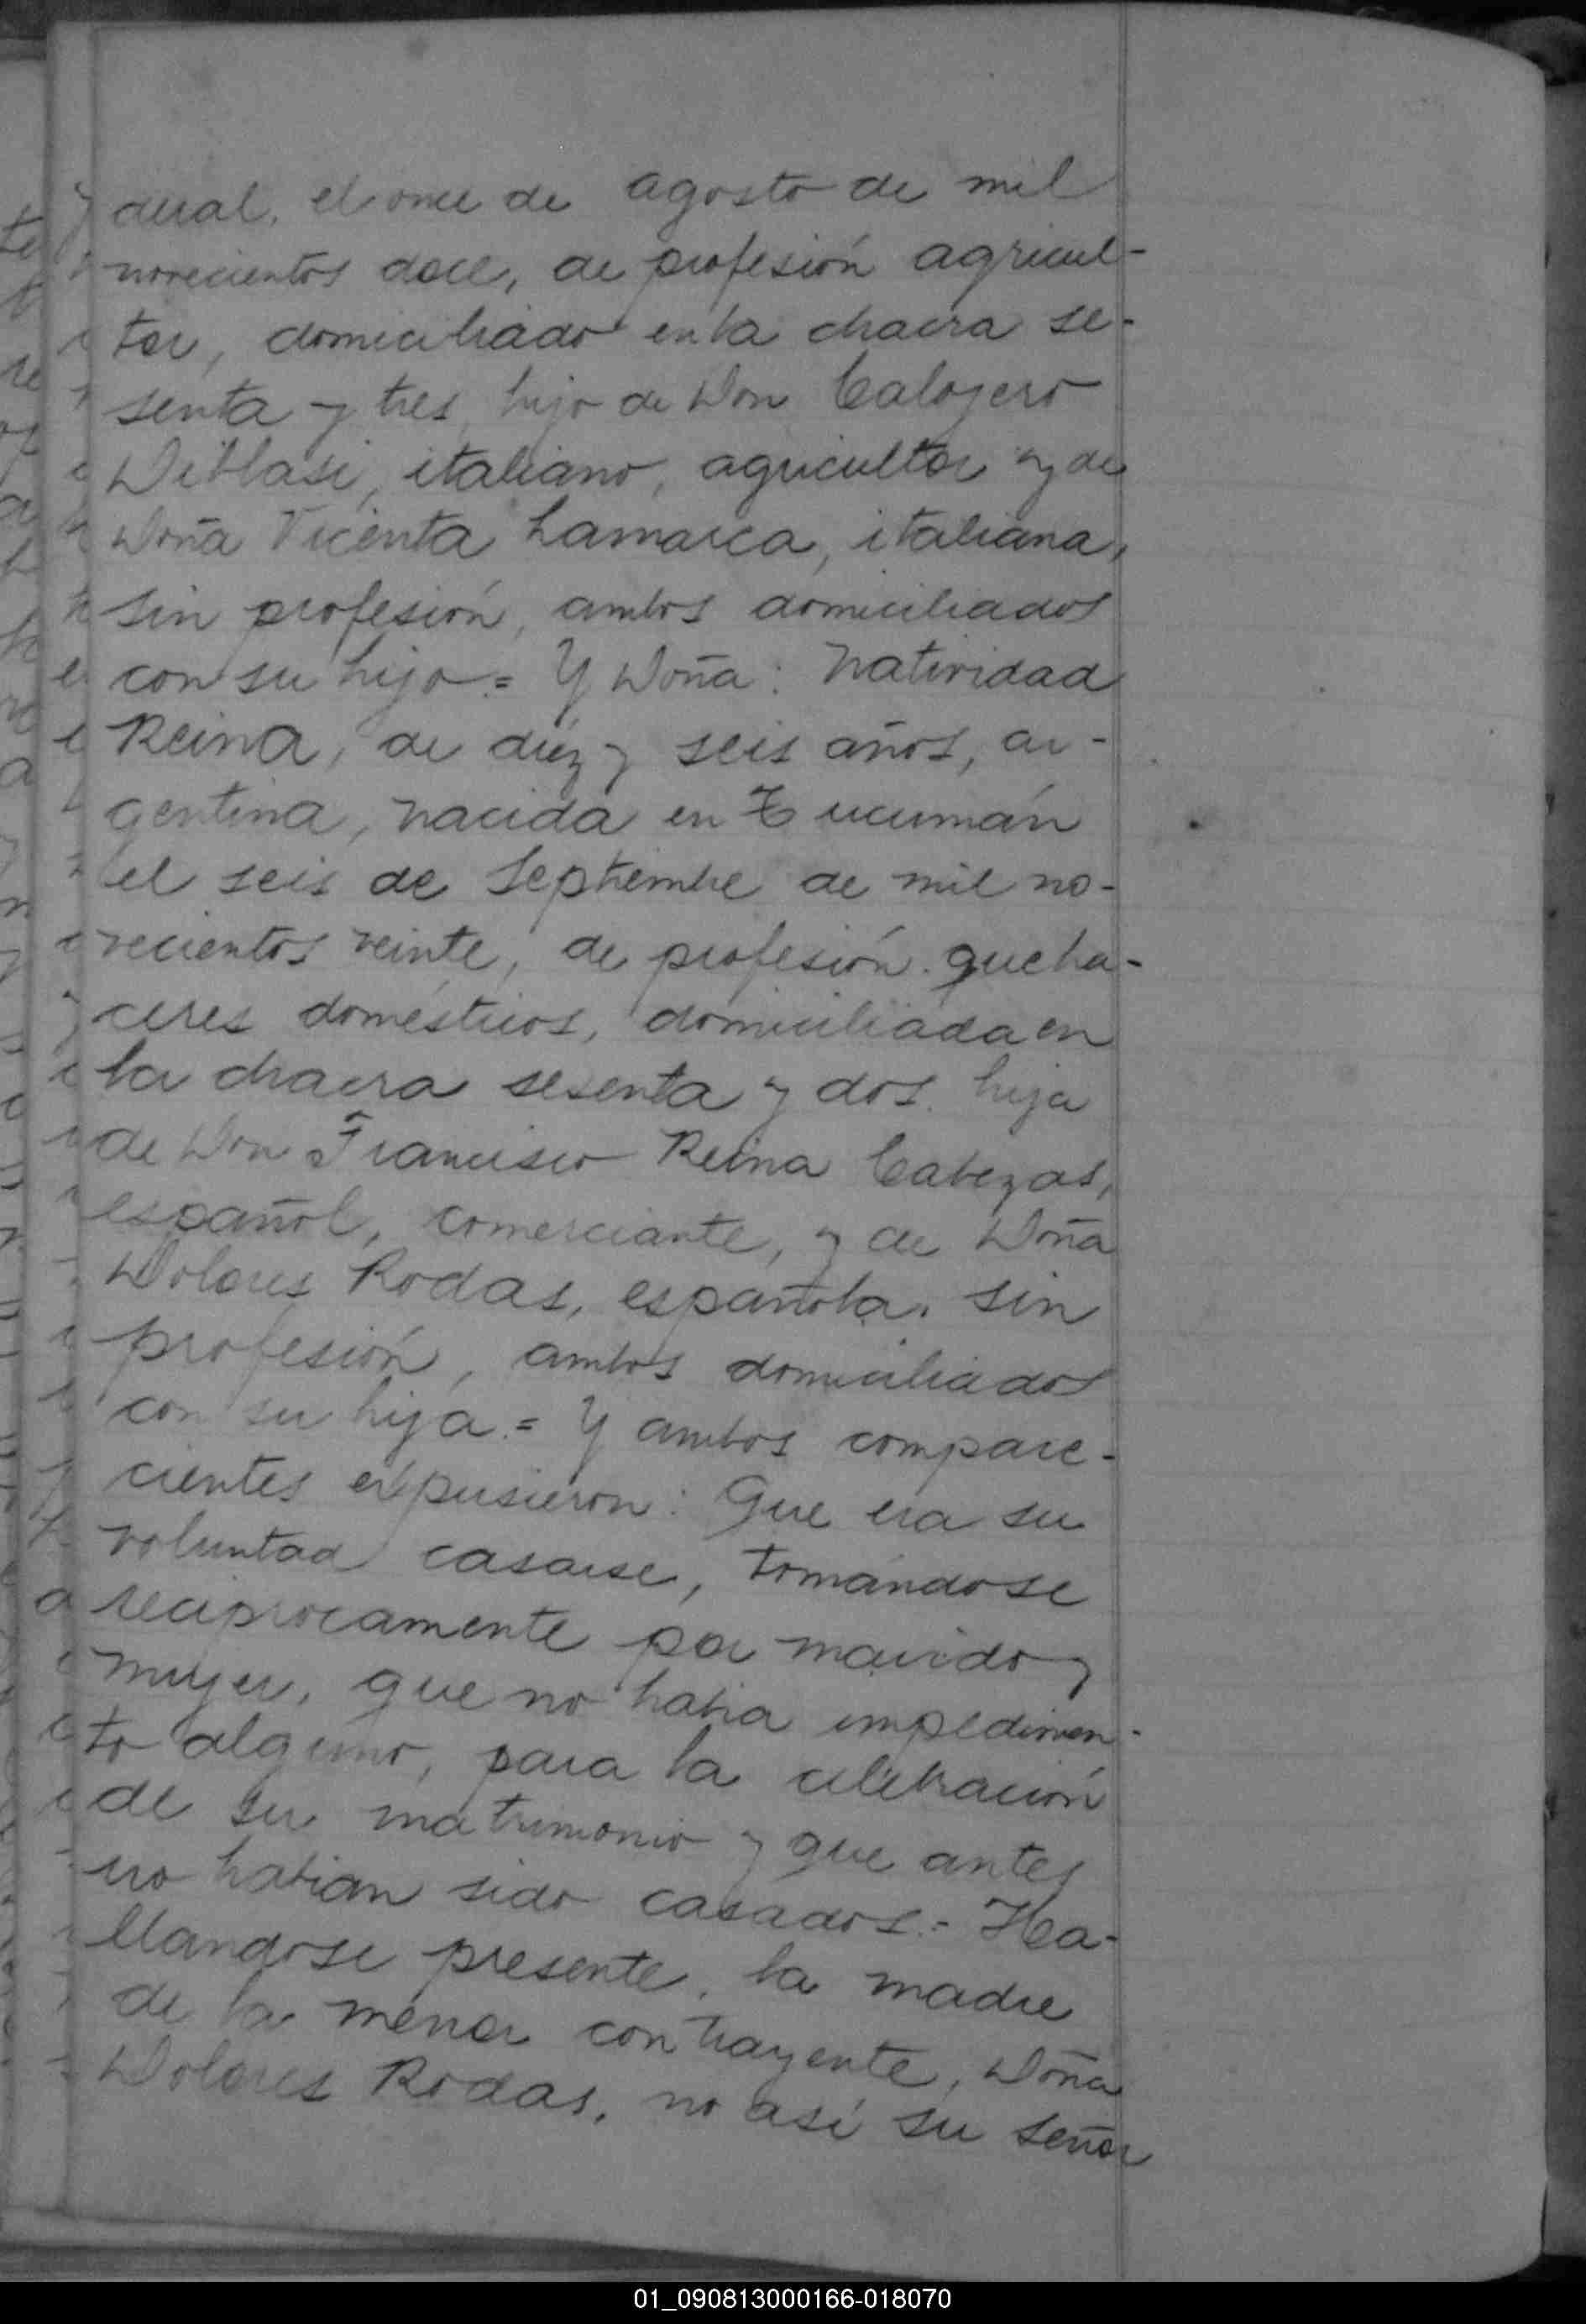 deral, el once de agosto de mil
novecientos doce, de profesión agricul-
tor, domiciliado en la chacra se-
senta y tres, hijo de Don Calogero
Diblasi, italiano, agricultor y de
Doña Vicenta Lamarca, italiana,
sin profesión, ambos domiciliados
con su hijo.= Y Doña: Natividad
Reina, de diéz y seis años, ar-
gentina, nacida en Tucumán
el seis de Septiembre de mil no-
vecientos veinte, de profesión queha-
ceres domésticos, domiciliada en
la chacra sesenta y dos. hija
de Don Francisco Reina Cabezas,
español, comerciante, y de Doña
Dolores Rodas, española, sin
profesión, ambos domiciliados
con su hija.= Y ambos compare-
cientes expusieron: Que era su
voluntad casarse, tomándose
reciprocamente por marido y
mujer, que no habia impedimen-
to alguno, para la celebración
de su matrimonio y que antes
no habian sido casados.= Ha-
llandose presente, la madre
de la menor contrayente, Doña
Dolores Rodas, no así su señor
01_090813000166-018070